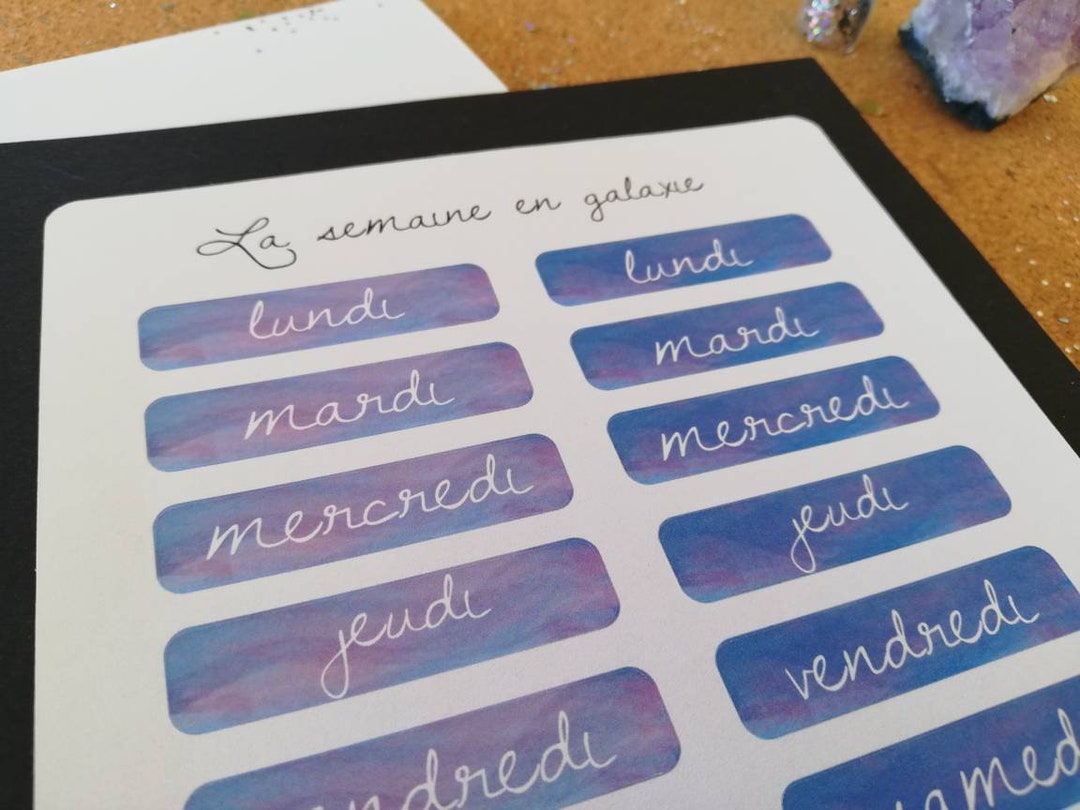 La semaine en galaxie
lundi
mardi
mercredi
jeudi
lundi
mardi
mercredi
jeudi
vendredi